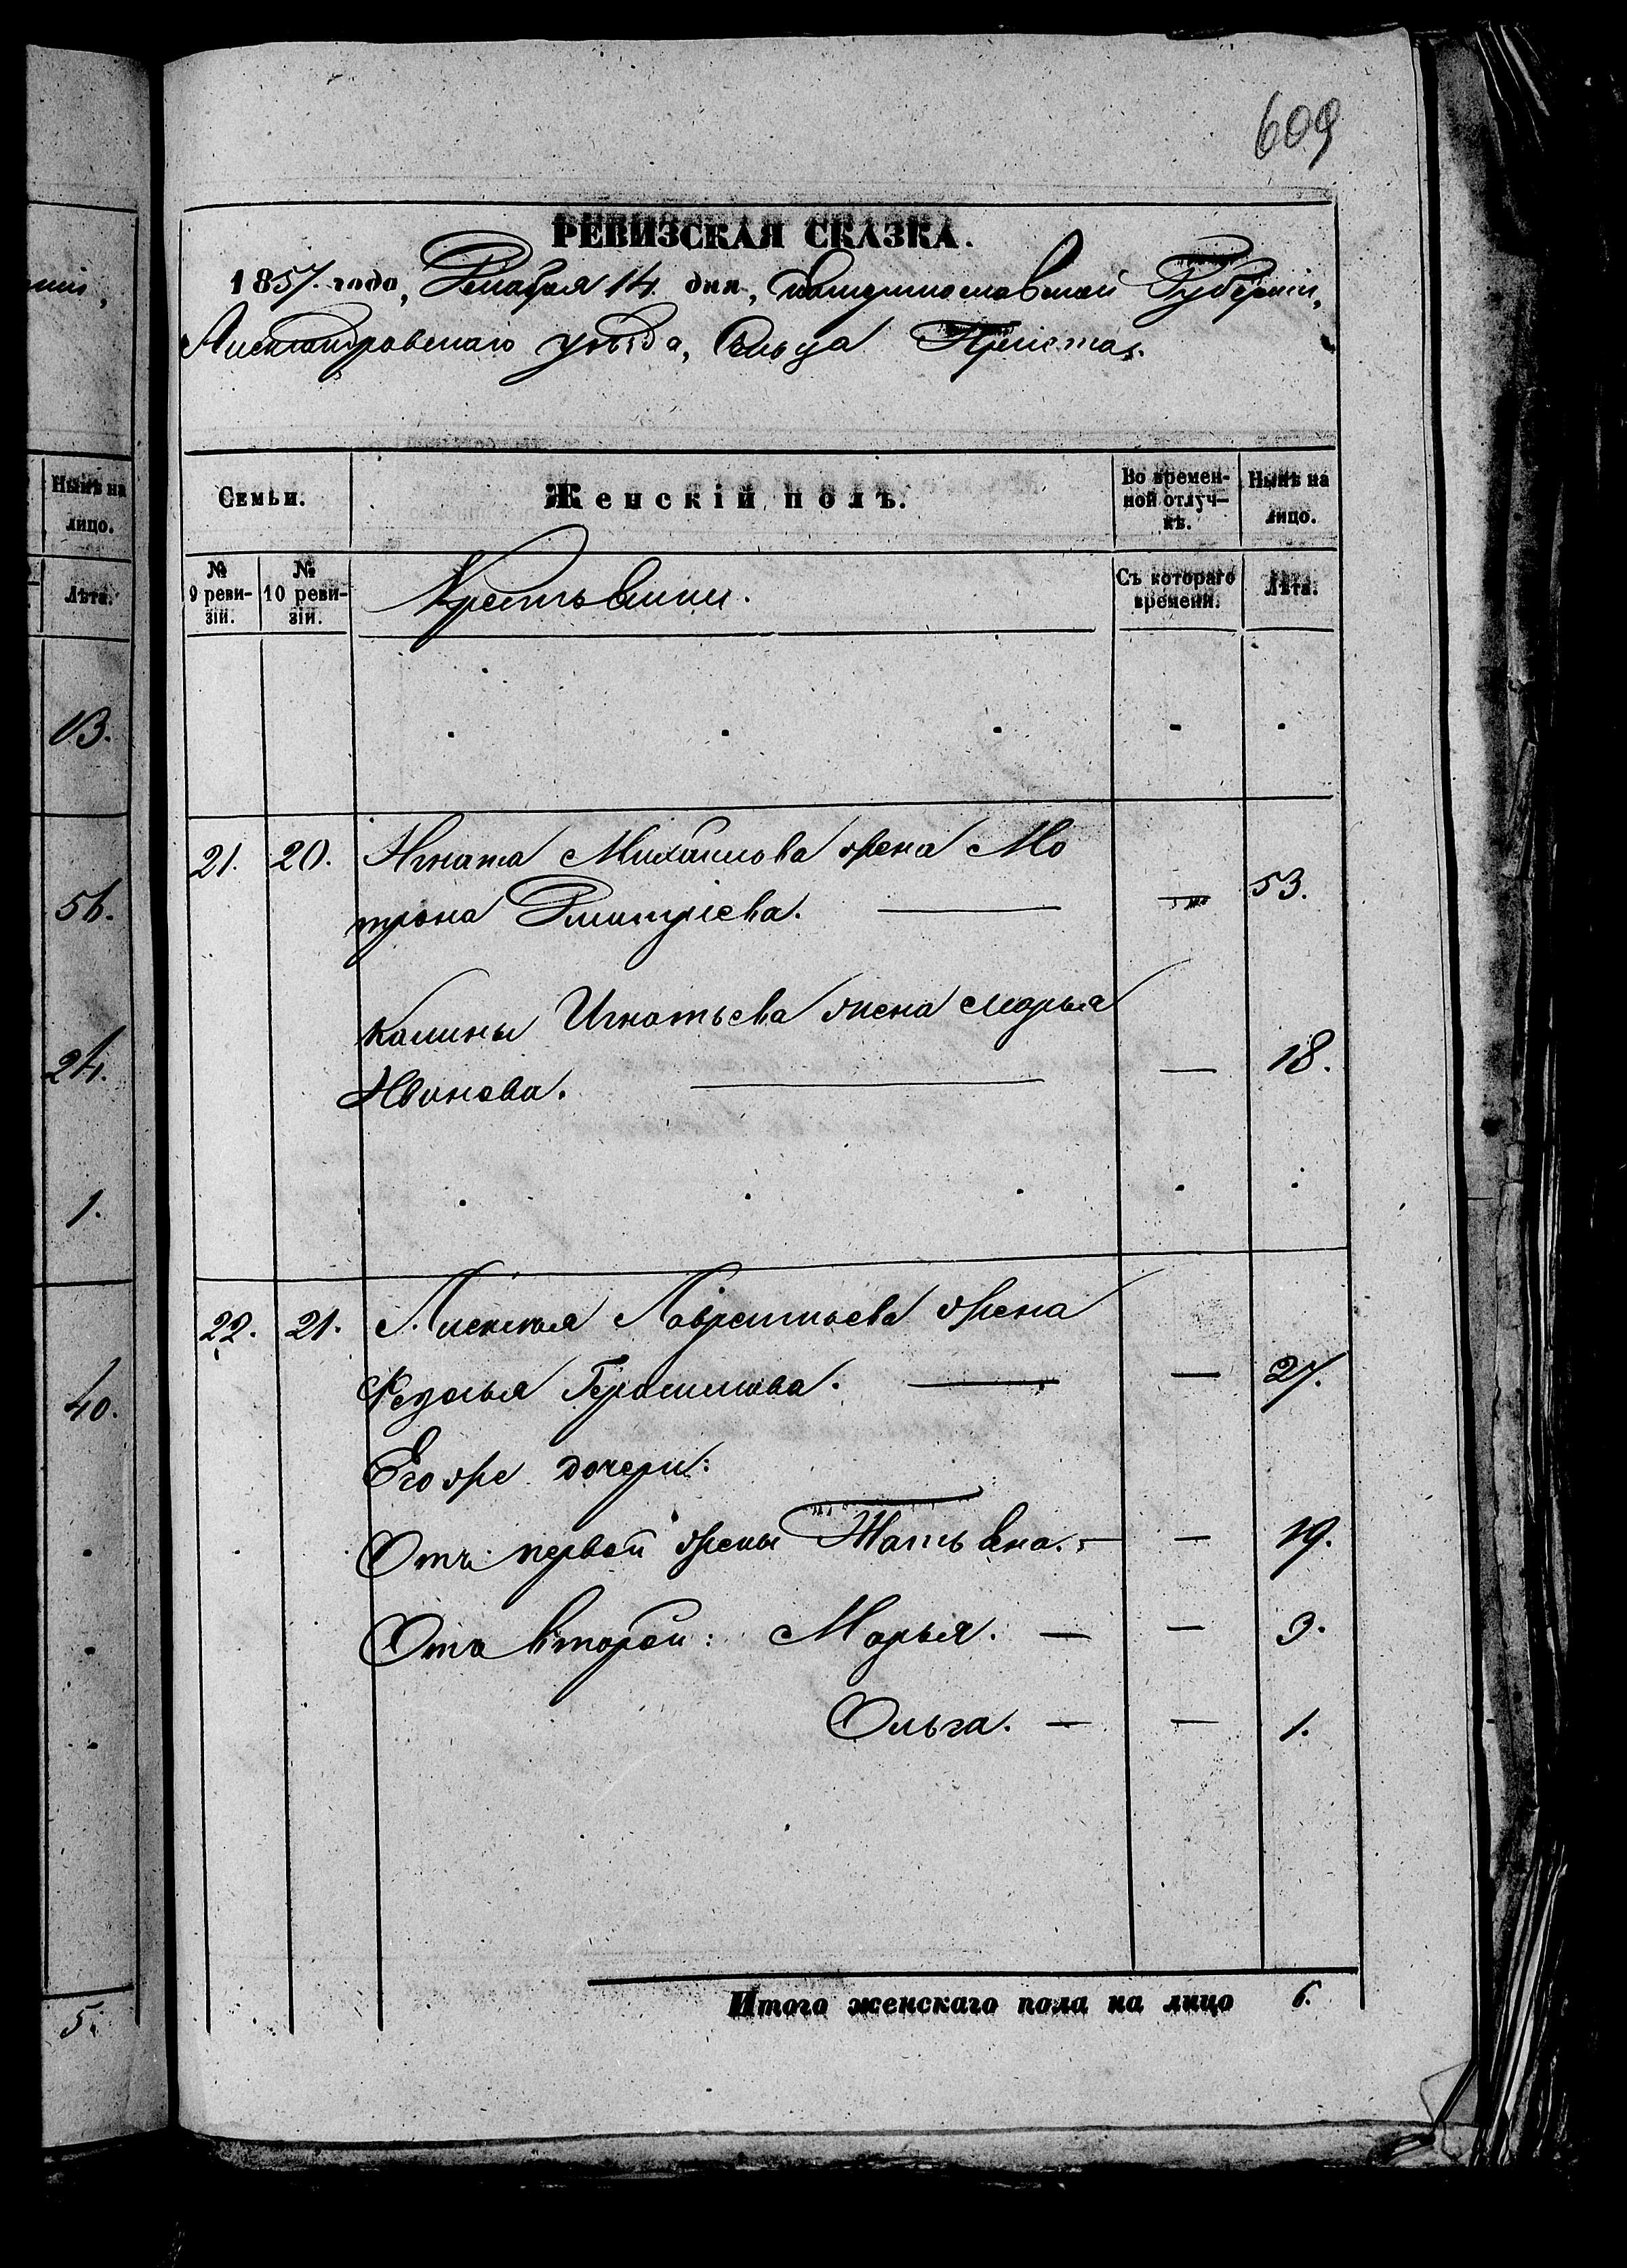 609
ній,
РЕВИЗСКАЯ СКАЗКА.
1857. года, Декабря 14 дня, Екатеринославской Губерніи,
Александровскаго уѣзда, Сельца
Нынѣ на
лицо.
Лѣта.
13.
56.
24.
1.
40.
5.
Семьи.
Женскій полъ.
Во времен-
ной отлуч-
кѣ.
Нынѣ на
лицо.
№
9 реви-
зіи.
№
10 реви-
зіи.
Крестьянки.
Съ котораго
времени.
Лѣта.
21. 20. Игната Михайлова жена Мо
трона Дмитріева. — — 53.
Калины Игнатьева жена Марья
Иванова. — — 18.
22. 21. Алексея Лаврентьева жена
Федосья Герасимова. — — 27.
Его же дочери:
Отъ первой жены Татьяна. — — 19.
Отъ второй: Марья. — — 3.
Ольга. — — 1.
Итого женскаго пола на лицо 6.